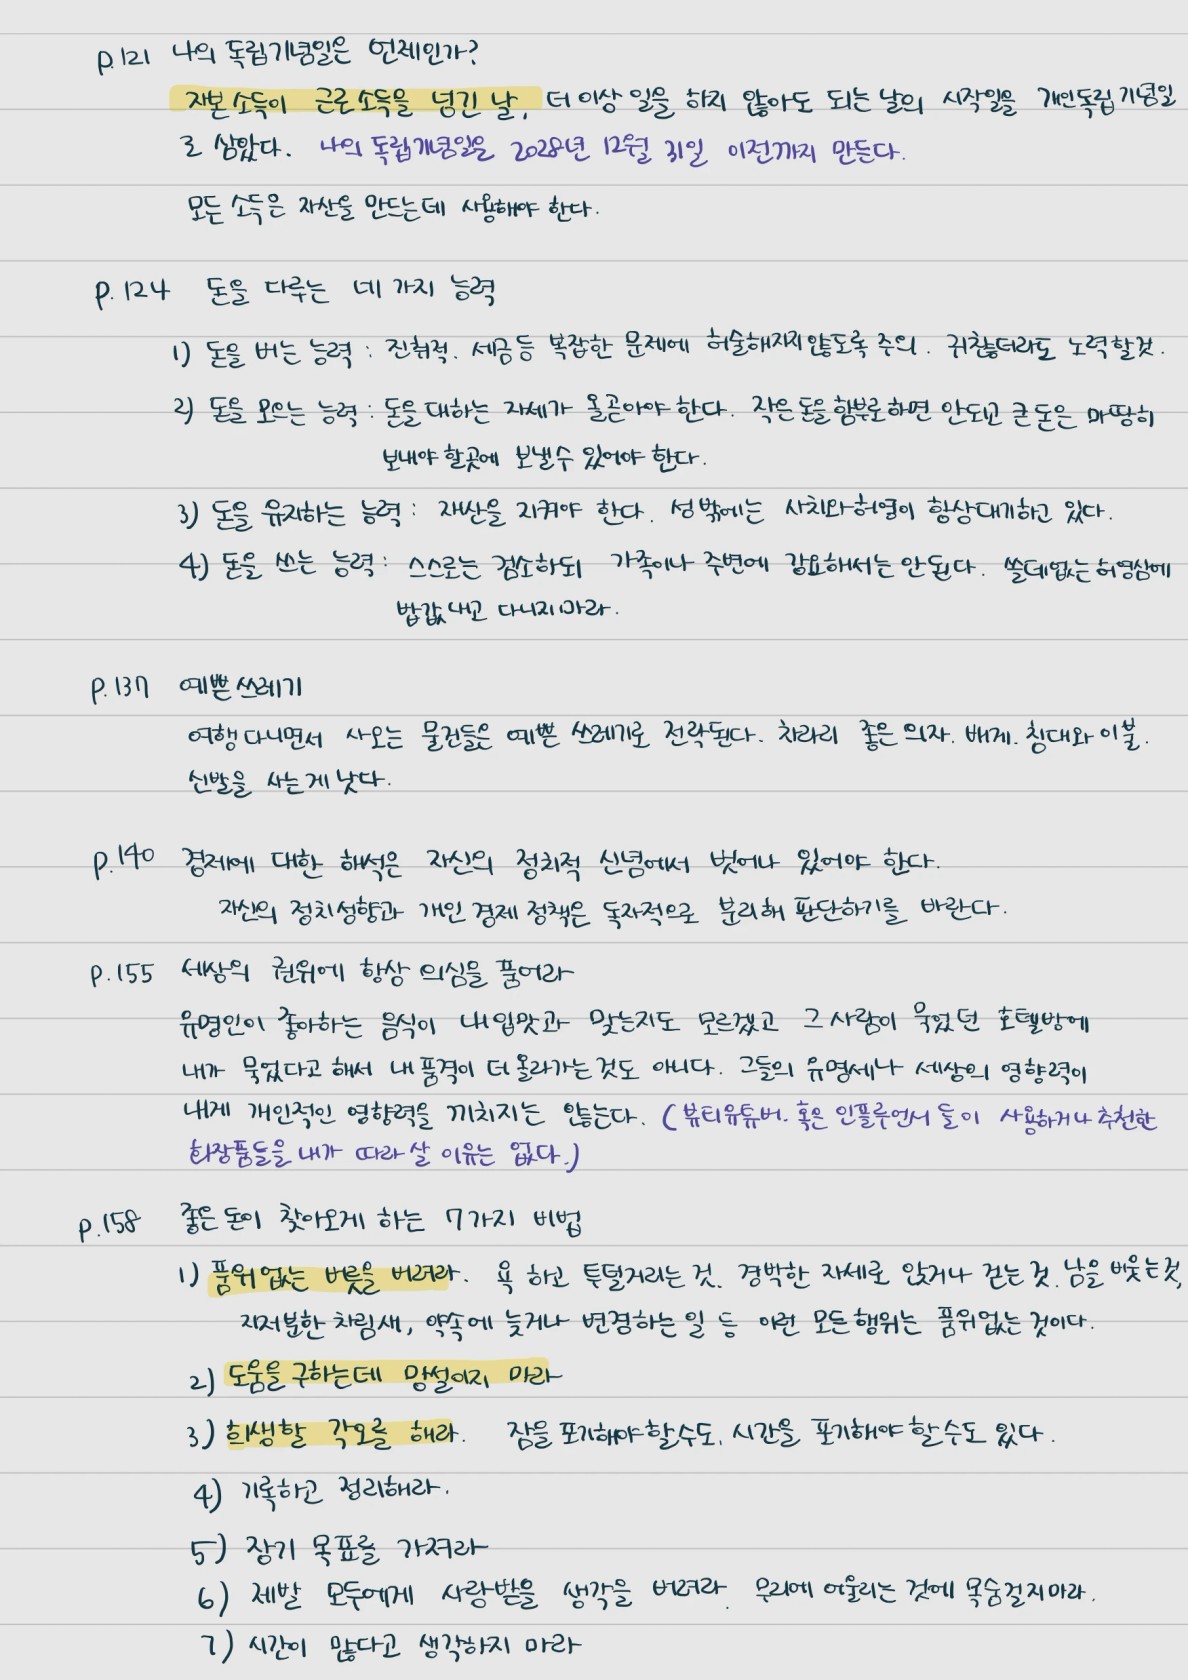 p.121 나의 독립기념일은 언제인가?
자본소득이 근로소득을 넘긴 날, 더 이상 일을 하지 않아도 되는 날의 시작일을 개인독립기념일
로 삼았다. 나의 독립기념일을 2028년 12월 31일 이전까지 만든다.
모든 소득은 자산을 만드는데 사용해야 한다.
p.124 돈을 다루는 네 가지 능력
1) 돈을 버는 능력 : 진취적. 세금등 복잡한 문제에 허술해지지않도록 주의. 귀찮더라도 노력할것.
2) 돈을 모으는 능력 : 돈을 대하는 자세가 올곧아야 한다. 작은돈을 함부로하면 안되고 큰돈은 마땅히
보내야 할곳에 보낼수 있어야 한다.
3) 돈을 유지하는 능력 : 재산을 지켜야 한다. 성 밖에는 사치와 허영이 항상대기하고 있다.
4) 돈을 쓰는 능력 : 스스로는 검소하되 가족이나 주변에 강요해서는 안된다. 쓸데없는 허영심에
밥값 내고 다니지마라.
p.137 예쁜쓰레기
여행다니면서 사오는 물건들은 예쁜 쓰레기로 전락된다. 차라리 좋은 의자. 베게. 침대와 이불.
신발을 사는게 낫다.
p.140 경제에 대한 해석은 자신의 정치적 신념에서 벗어나 있어야 한다.
자신의 정치성향과 개인 경제 정책은 독자적으로 분리해 판단하기를 바란다.
p.155 세상의 권위에 항상 의심을 품어라
유명인이 좋아하는 음식이 내입맛과 맞는지도 모르겠고 그 사람이 묵었던 호텔방에
내가 묵었다고 해서 내 품격이 더 올라가는것도 아니다. 그들의 유명세나 세상의 영향력이
내게 개인적인 영향력을 끼치지는 않는다. (뷰티유튜버. 혹은 인플루언서 들이 사용하거나 추천한
화장품들을 내가 따라 살 이유는 없다.)
p.158 좋은 돈이 찾아오게 하는 7가지 비법
1) 품위없는 버릇을 버려라. 욕 하고 투덜거리는 것. 경박한 자세로 앉거나 걷는 것. 남을 비웃는것,
지저분한 차림새, 약속에 늦거나 변경하는 일 등 이런 모든행위는 품위없는 것이다.
2) 도움을 구하는데 망설이지 마라
3) 희생할 각오를 해라. 잠을 포기해야할수도, 시간을 포기해야 할수도 있다.
4) 기록하고 정리해라.
5) 장기 목표를 가져라
6) 제발 모두에게 사랑받을 생각을 버려라. 무리에 어울리는 것에 목숨걸지마라.
7) 시간이 많다고 생각하지 마라